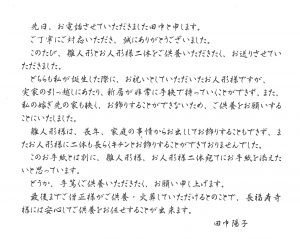 先日、お電話させていただきました田中と申します。
ご丁寧にご対応いただき、誠にありがとうございました。
このたび、雛人形とお人形様二体をご供養いただきたく、お送りさせて
いただきました。
どちらも私が誕生した際に、お祝いとしていただいたお人形様ですが、
実家の引っ越しにあたり、新居が非常に手狭で持っていくことができず、また、
私の嫁ぎ先の家も狭く、お飾りすることができないため、ご供養をお願いする
ことにいたしました。
雛人形様は、長年、家庭の事情からお出ししてお飾りすることもできず、ま
たお人形様に二体も長らくキチンとお飾りすることができておりませんでした。
このお手紙とは別に、雛人形様、お人形様二体宛てにお手紙を添えたい
と思っています。
どうか、手篤くご供養いただきたく、お願い申し上げます。
最後までご僧正様がご供養・火葬していただけるとのことで、長福寿寺
様には安心してご供養をお任せすることが出来ます。
田中 陽子